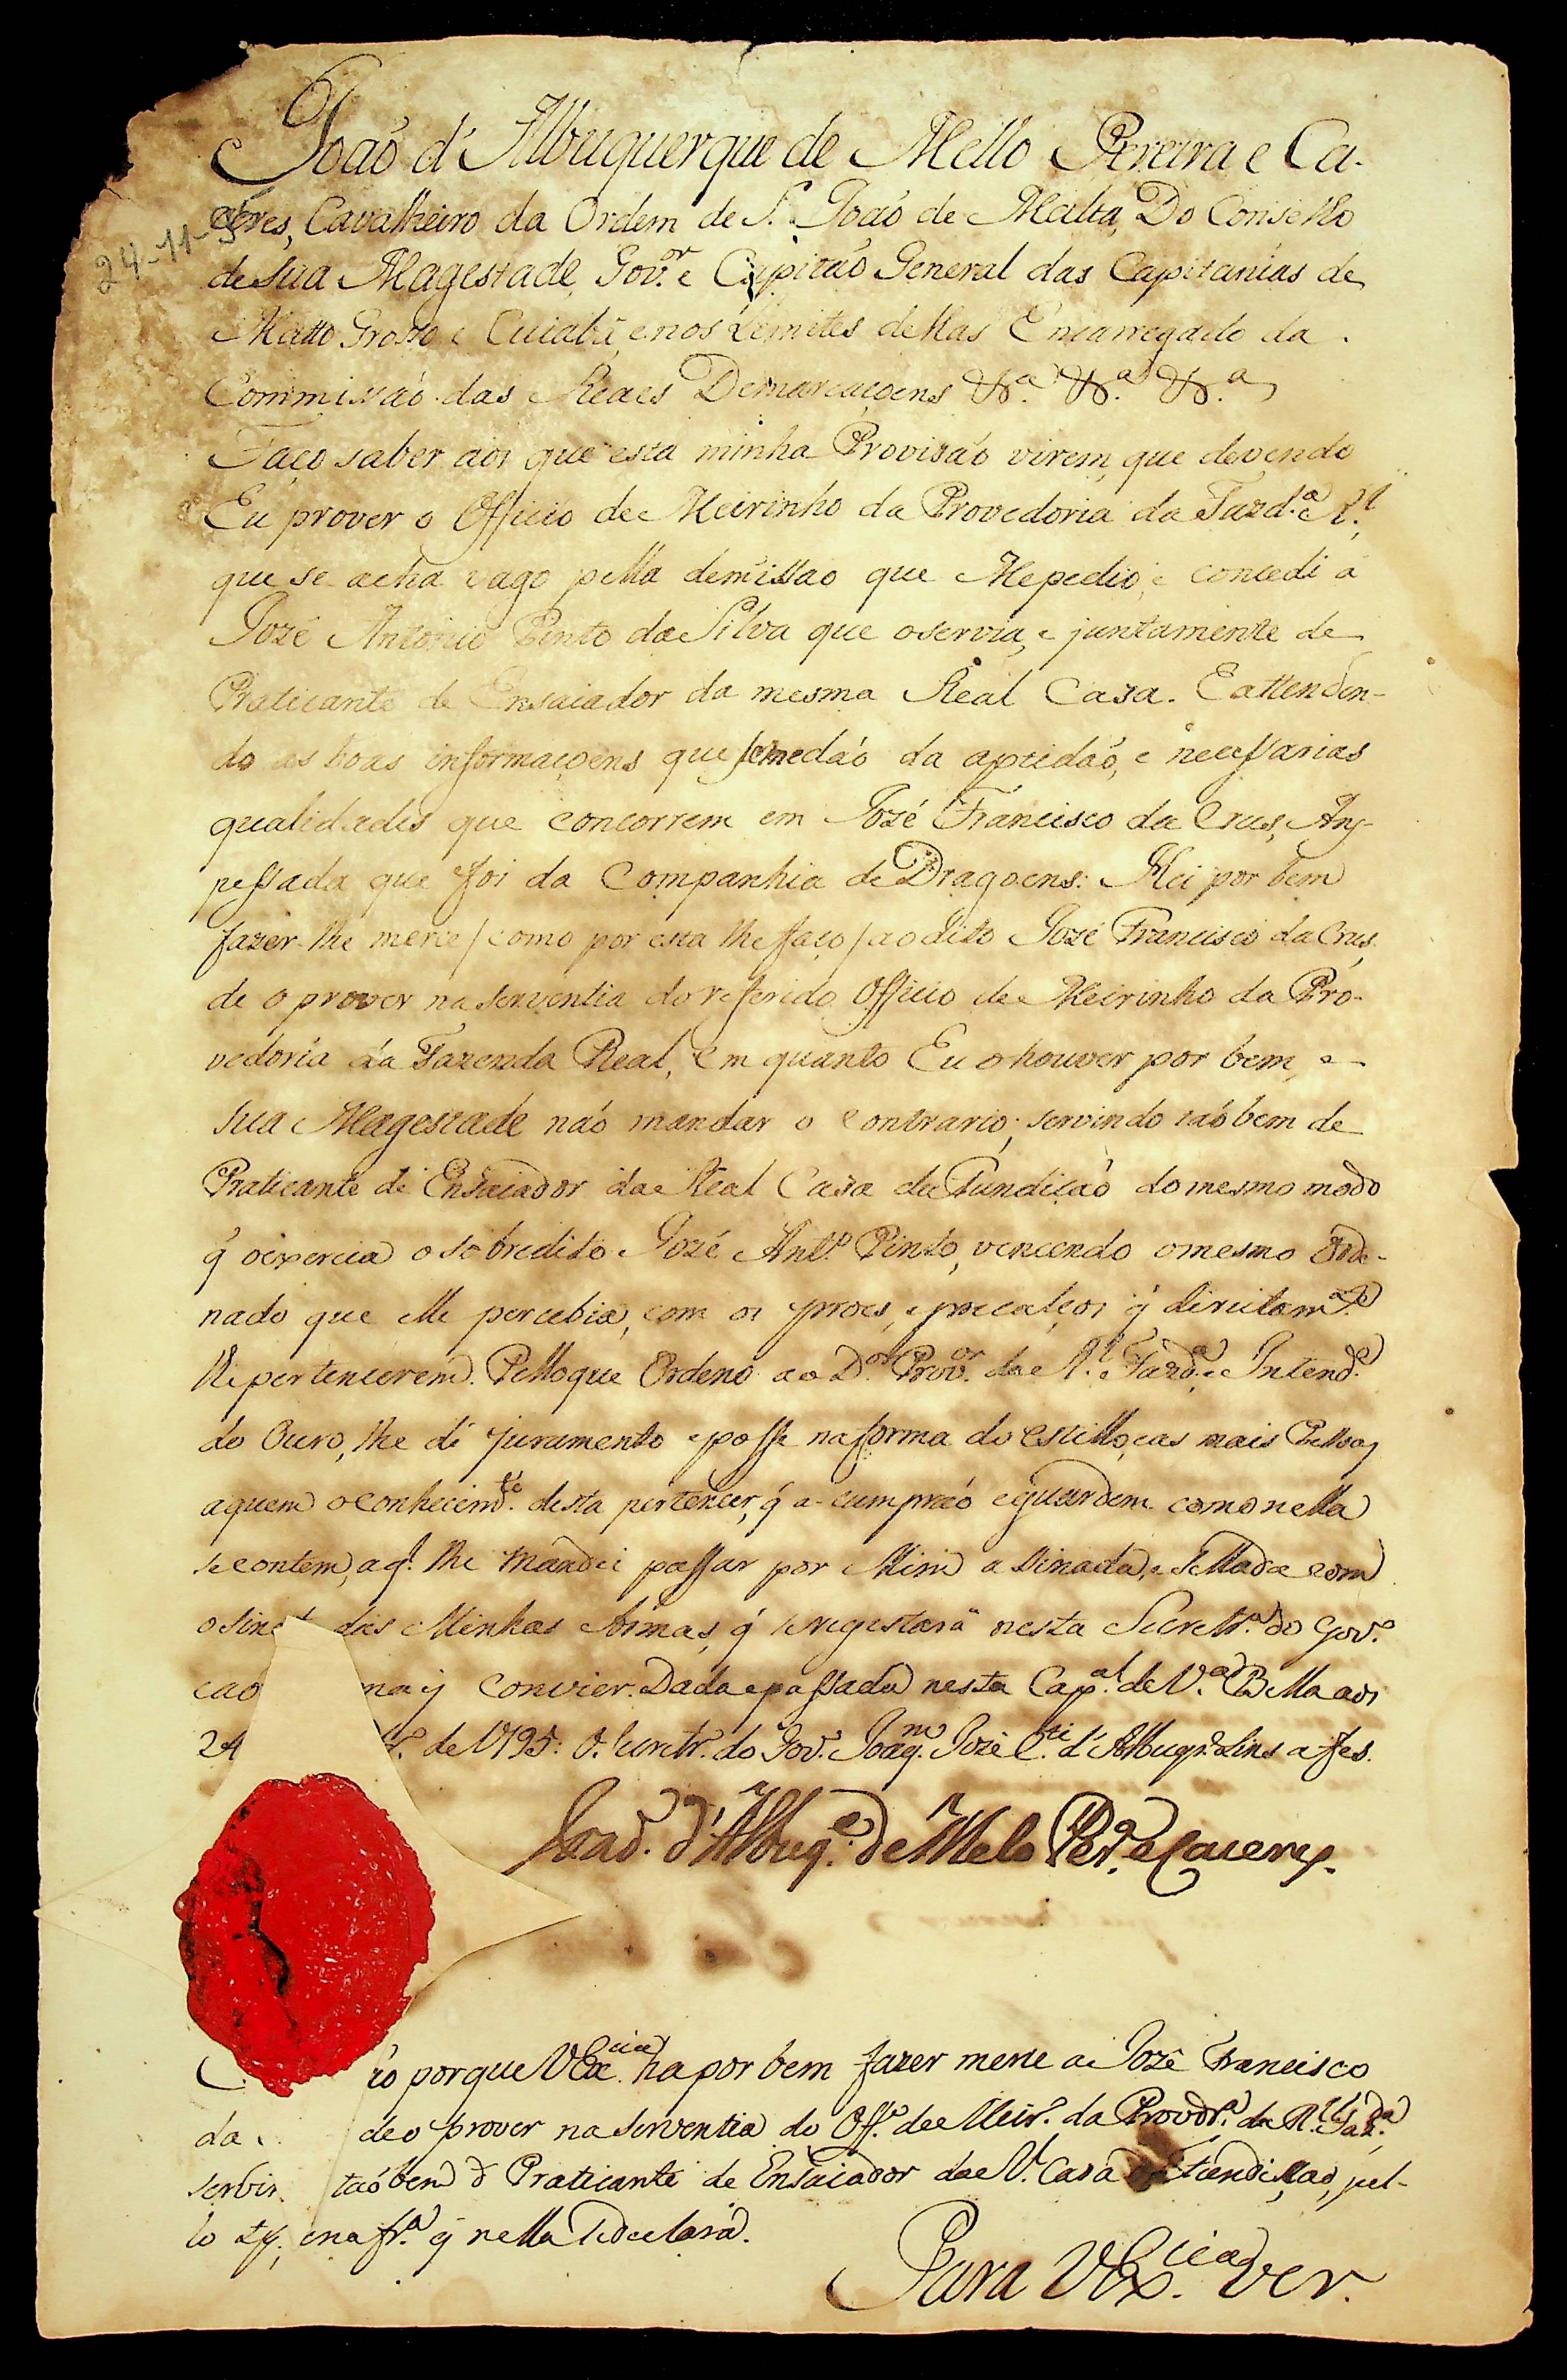 João d'Albuquerque de Mello Pereira e Ca-
ceres, Cavalheiro da Ordem de S. João de Malta, Do Conselho
24-11-95
de Sua Magestade, Gov.or e Capitão General das Capitanias de
Matto Grosso e Cuiabá, e nos Lemites dellas Encarregado da
Commissão das Reaes Demarcaçoens &.a &.a &.a
Faço saber aos que esta minha Provizão virem, que devendo
Eu prover o Officio de Meirinho da Provedoria da Fazd.a R.l
que se acha vago pella demissao que Mepedio, e concedi a
Jozé Antonio Pinto da Silva que o servia, e juntamente de
Praticante de Ensaiador da mesma Real Casa. E attenden-
do as boas informaçoens que semedão da aptidão, e necessarias
qualidades que concorrem em Jozé Francisco da Crus, An-
pessada que foi da Companhia de Dragoens: Hei por bem
fazer-lhe merce / como por esta lhe faço / ao dito Jozé Francisco da Crus,
de o prover na serventia do referido Officio de Meirinho da Pro-
vedoria da Fazenda Real, em quanto Eu o houver por bem, e
Sua Magestade não mandar o contrario; servindo taobem de
Praticante de Ensaiador da Real Casa da Fundição do mesmo modo
q̃ o exercia o sobredito Jozé Ant.o Pinto, vencendo o mesmo Orde-
nado que elle percebia, com os proes, e precalços q̃ direitam.te
lhe pertencerem. Pello que Ordeno ao D.or Prov.or da R.l Fazd.a e Intend.e
do Ouro, lhe dé juramento e posse na forma do estillo, e as mais Pessoas
a quem o conhecim.to desta pertencer, q̃ a cumpraõ e guardem como nella
se contem, a q.l lhe mandei passar por Mim assinada, e sellada com
o sine das Minhas Armas, q̃ se registará nesta Secretr.a do Gov.o
e ao mais convier. Dada e passada nesta Cap.al de V.a Bella aos
24 de 1795: O Secretr.o do Gov.o Joaq.m Jozé C.ti d'Albuqr.e Lins a fes.
Joaõ. d'Albuq.e de Mello Per.a e Caceres.
porque V Ex.cia ha por bem fazer merce a Jozé Francisco
da de o prover na serventia do Off.o de Meir.o da Provdr.a da R.l Faz.da,
servin taobem d Praticante de Ensaiador da R.l Casa Fundição, pel-
lo e na fr.a q̃ nella se declara.
Para V Ex.cia ver.